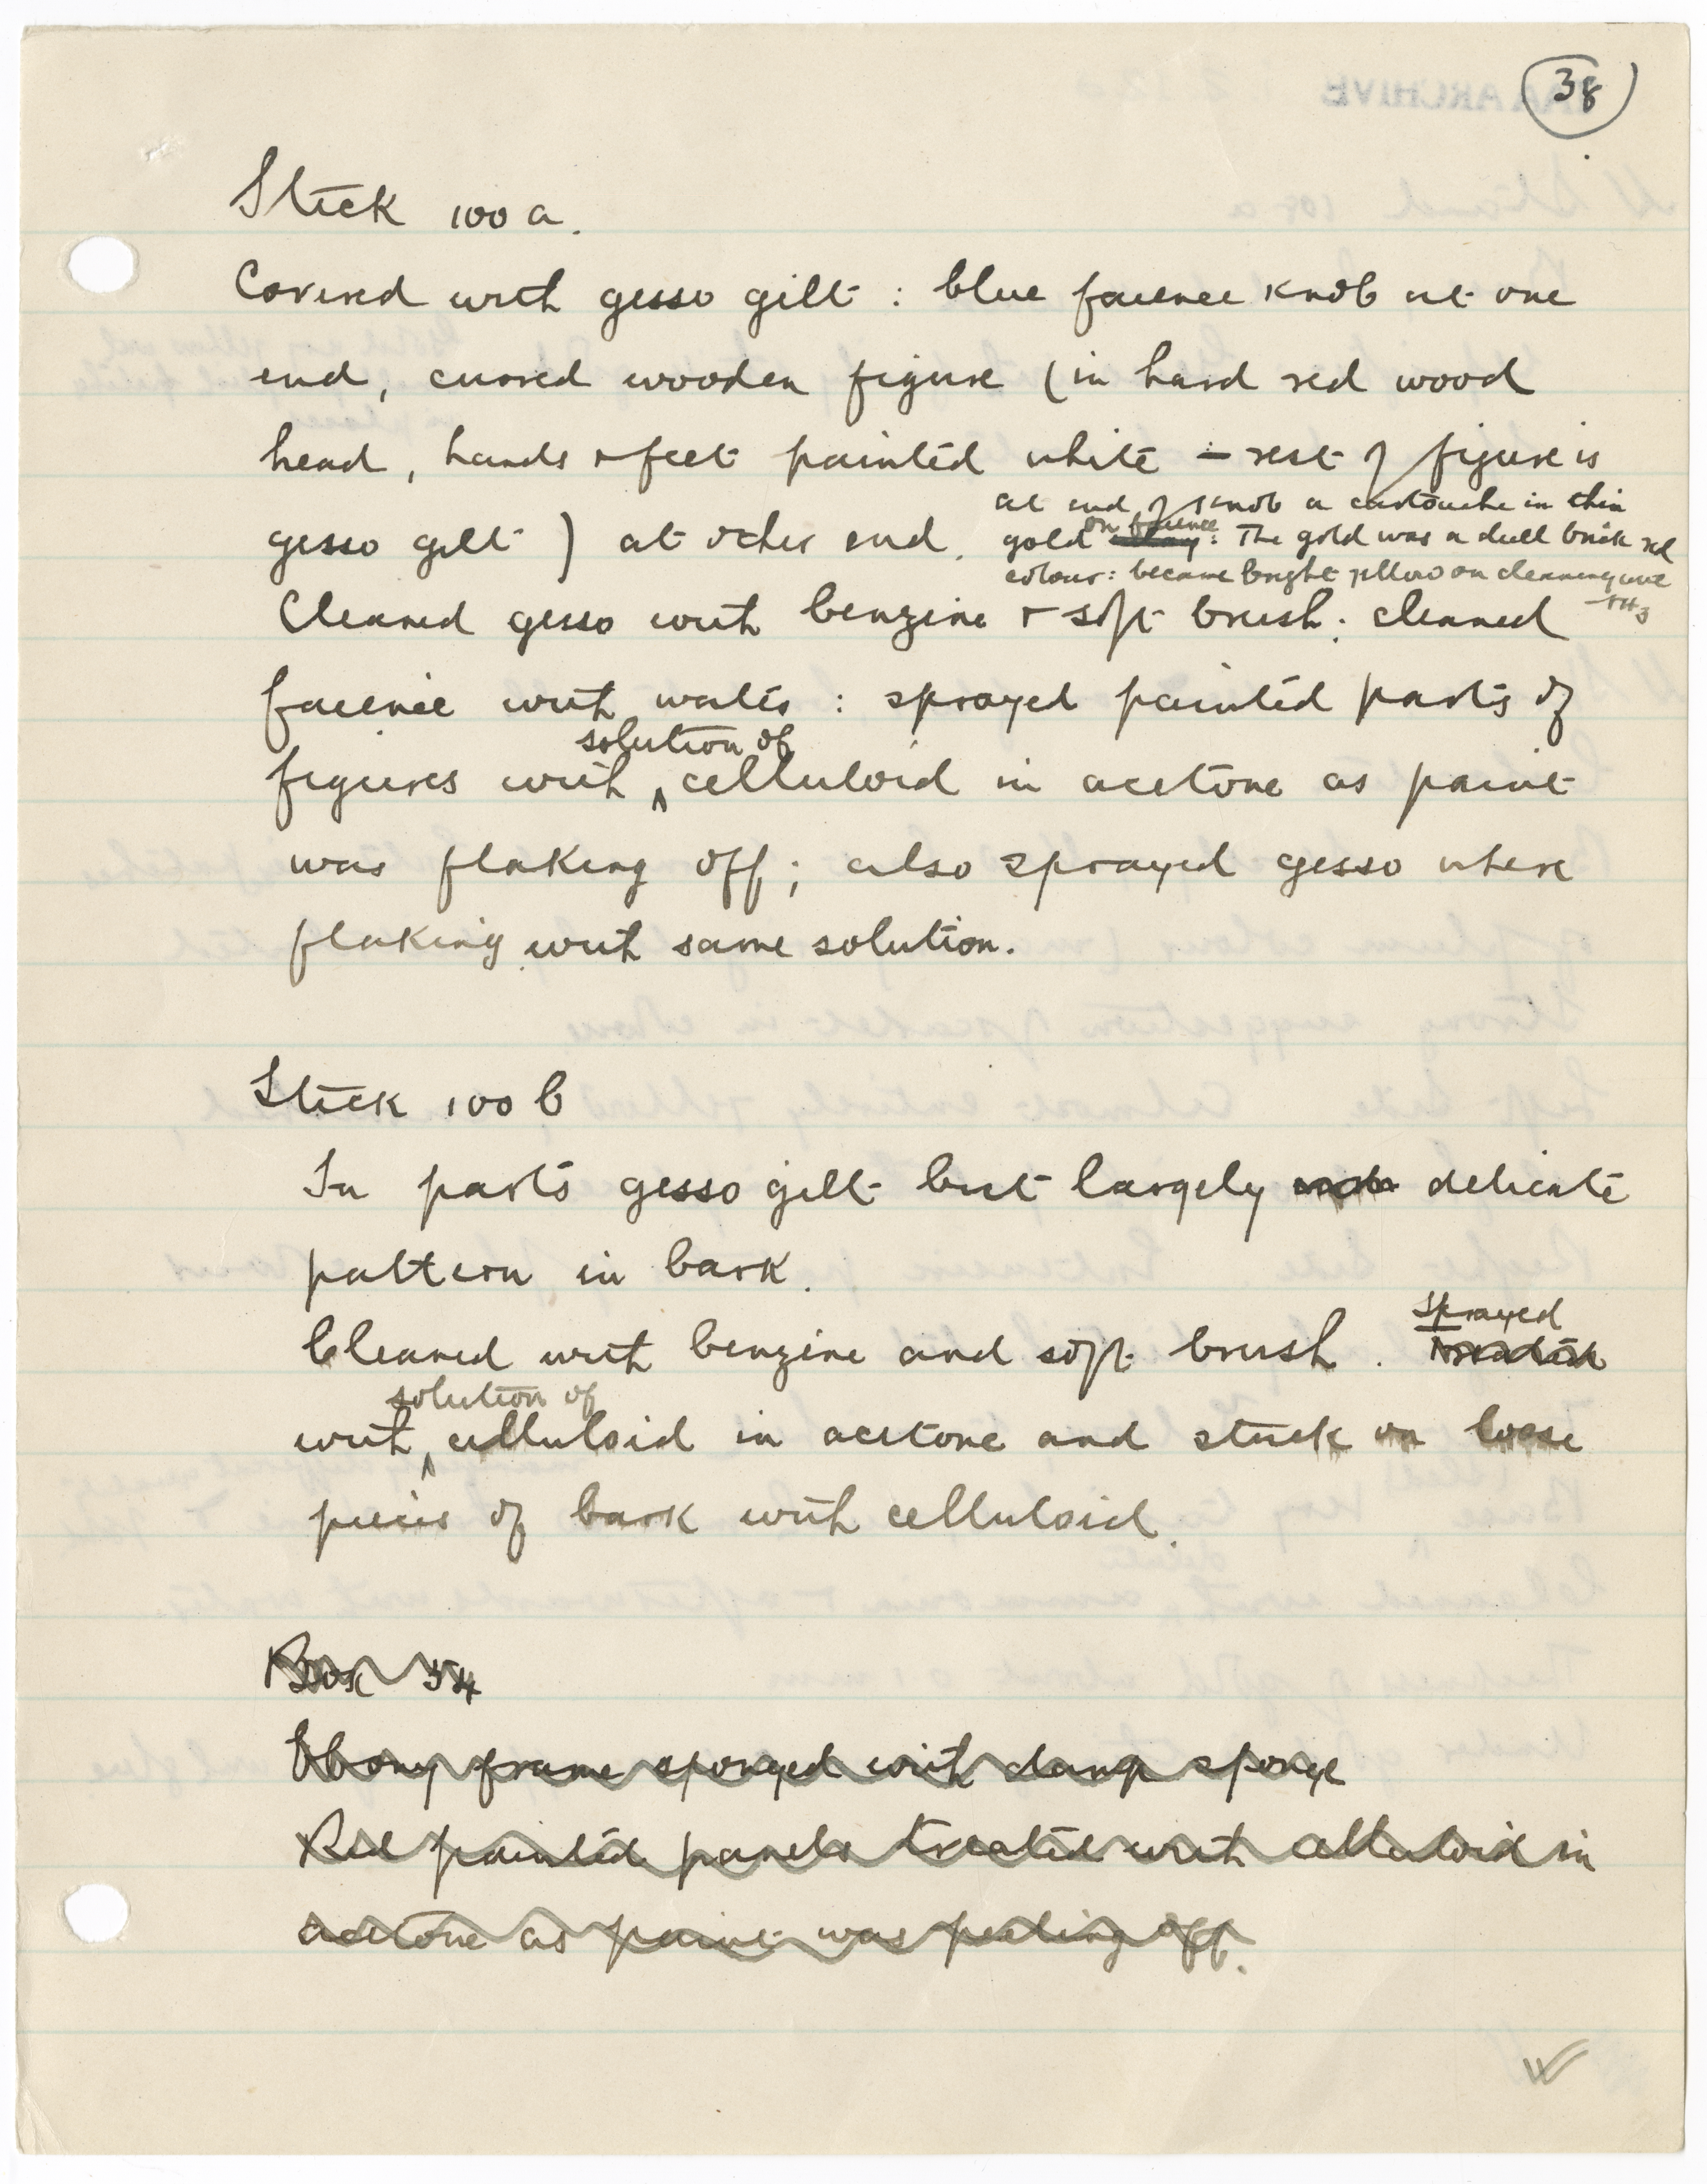 38
Stick 100 a.
Covered with gesso gilt : blue faience knob at one
end, curved wooden figure (in hard red wood
head, hands & feet painted white - rest of figure is
at end of knob a cartouche in thin
gesso gilt ) at other end.
on faience
gold : The gold was a dull brick red
colour: became bright yellow on cleaning with
NH3
Cleaned gesso with benzine & soft brush : cleaned
faience with water : sprayed painted parts of
solution of
figures with ‸ celluloid in acetone as paint
was flaking off ; also sprayed gesso where
flaking with same solution.
Stick 100 b
In parts gesso gilt but largely delicate
pattern in bark.
sprayed
Cleaned with benzine and soft brush . treated
solution of
with ‸ celluloid in acetone and stuck on loose
pieces of bark with celluloid.
Box 54
Ebony frame sponged with damp sponge
Red painted panels treated with celluloid in
acetone as paint was peeling off.